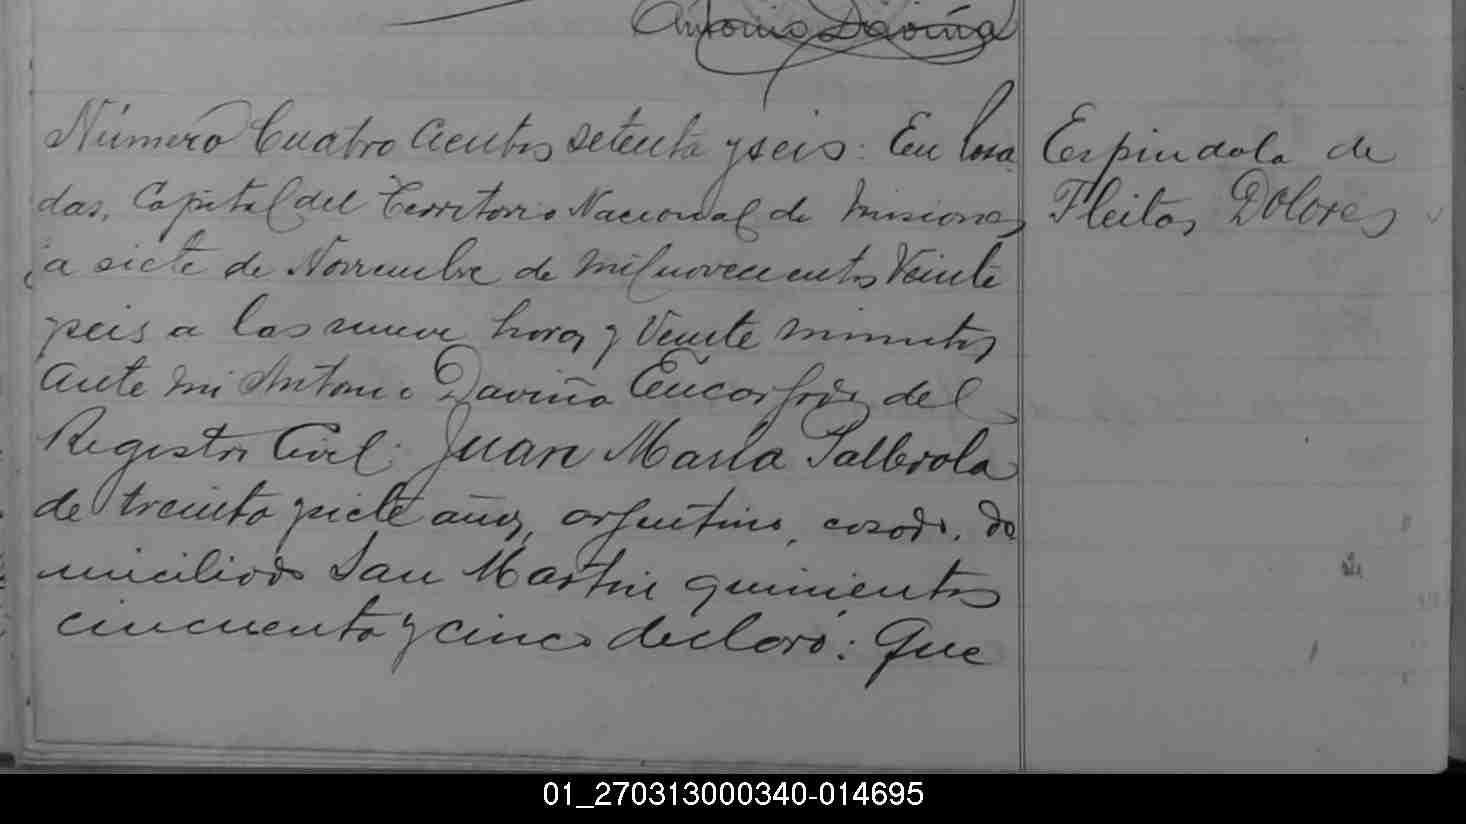 Antonio Daviña
Número Cuatro Cientos setenta y seis: En Posa
das, Capital del Territorio Nacional de Misiones
a siete de Noviembre de mil novecientos Veinte
y seis a las nueve horas y Veinte minutos
Ante mi Antonio Daviña Encargado del
Registro Civil: Juan María
de treinta y siete años, argentino, casado, do
miciliado San Martin quinientos
cincuenta y cinco declaró: Que
Espindola de
Fleitas Dolores
01_270313000340-014695